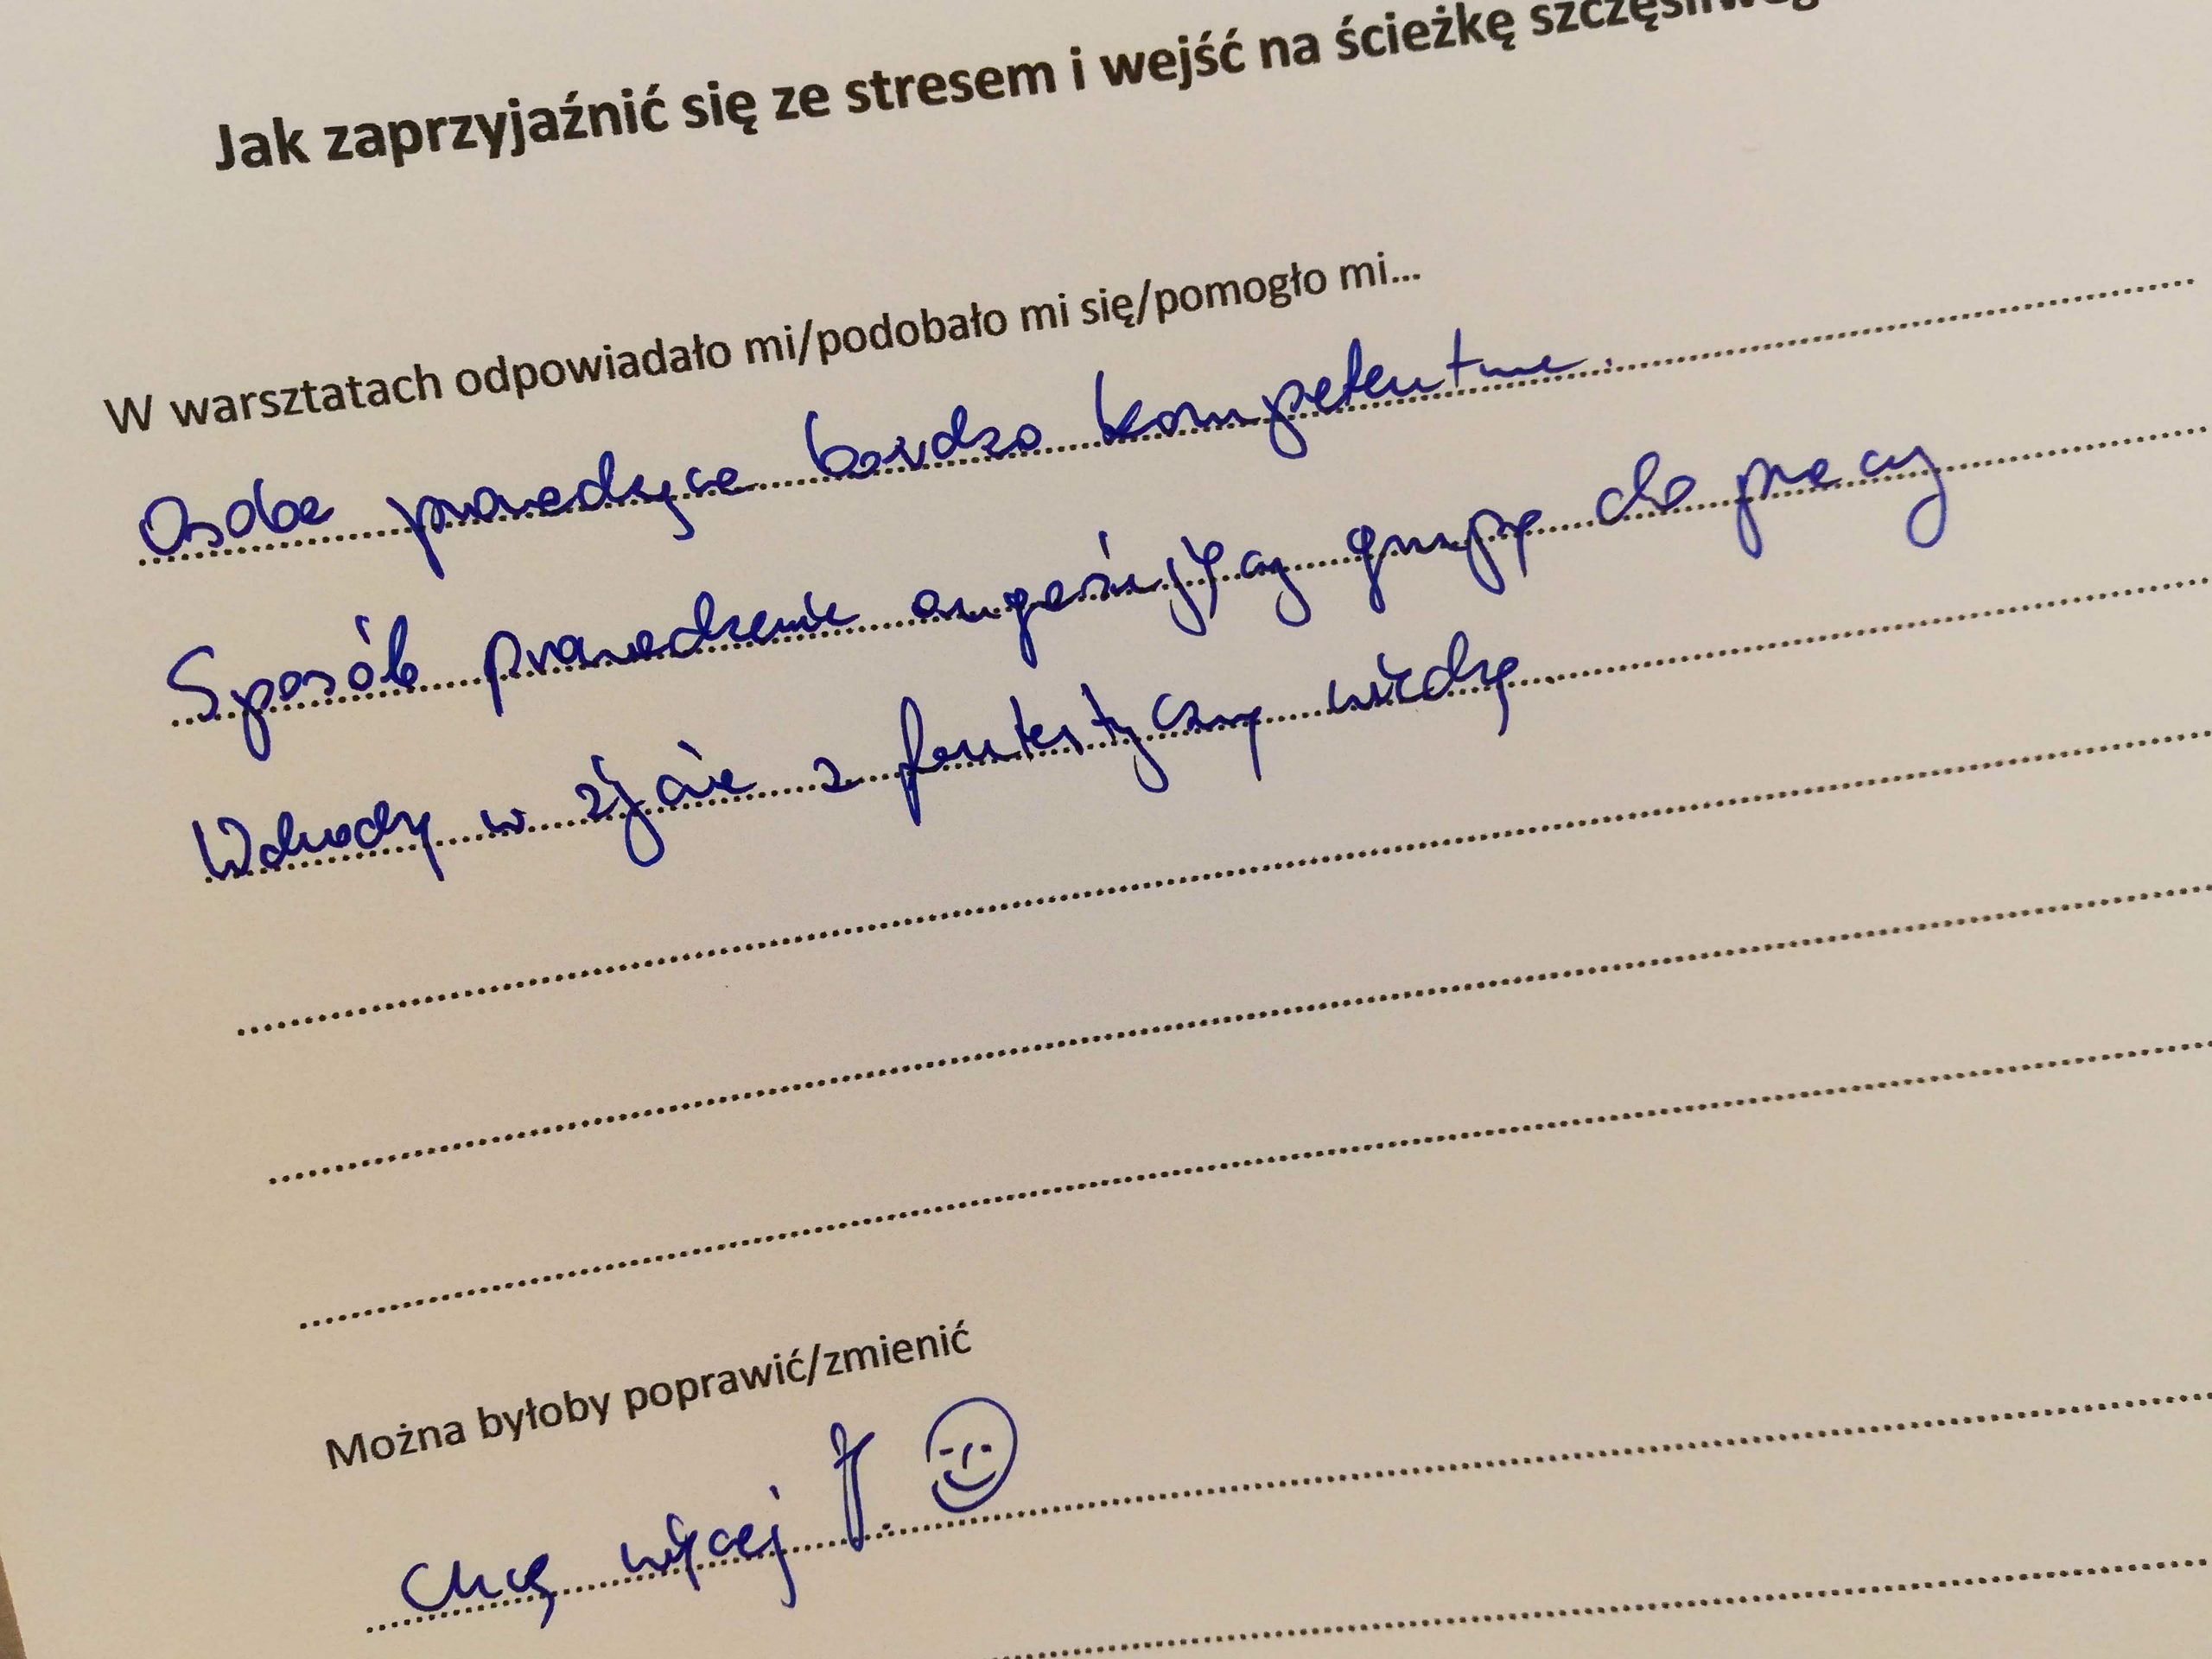 Jak zaprzyjaźnić się ze stresem i wejść na ścieżkę
W warsztatach odpowiadało mi/podobało mi się/pomogło mi...
Osoba prowadząca bardzo kompetentna.
Sposób prowadzenia angażujący grupę do pracy
Wchodzę w życie z fantastyczną wiedzą.
Można byłoby poprawić/zmienić
Chcę więcej !. ☺